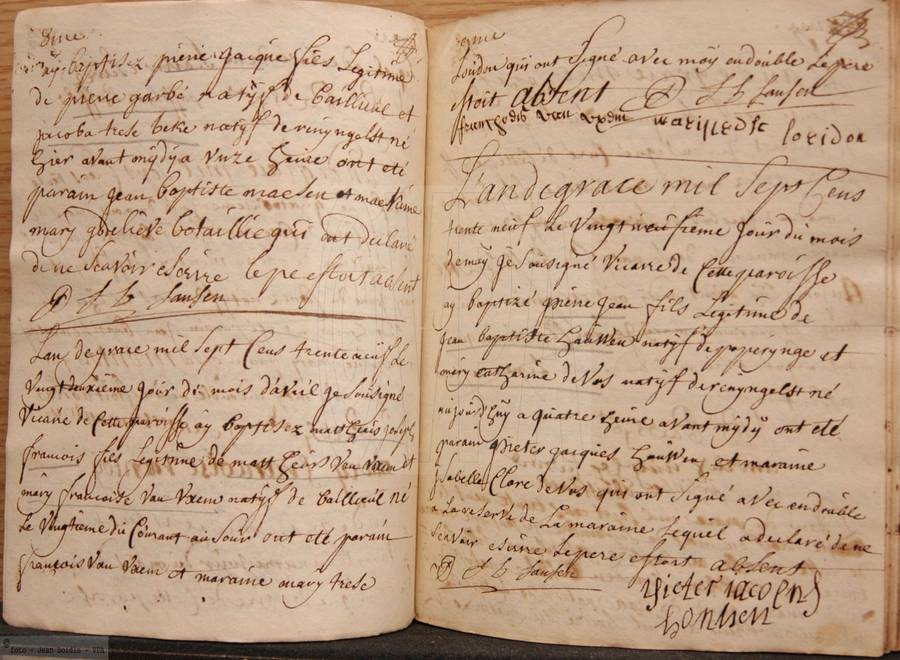 8me
ay baptisez pierre jacque fils Legitime
de pierre garbé natyf de bailleul et
jacoba trese beke natyf de renyngelst né
hier avant mÿdÿ a unze heure ont eté
parain jean baptiste maesen et mareine
mary godelieve botaillie qui ont declaré
de ne scavoir escrire le pere estoit absent
J B Jansen
Lan de grace mil sept Cens trente neuf Le
vingt deuxième jour du mois d'avril je sousigné
Vicaire de Cette paroisse ay baptisez mattheus joseph
francois fils Legitime de mattheus van uxem et
mary francoise van uxem natyf de bailleul né
Le vingtieme du Courant au soir ont eté parain
françois van uxem et maraine mary trese
9me
Loridon qui ont signé avec moy en double Le pere
estoit absent J B Jansen
franchoÿs van uxem marij loridon
L'an de grace mil Sept Cens
trente neuf Le vingt neufieme jour du mois
de may je sousigné vicaire de Cette paroisse
ay baptizé piere jean fils Legitime de
jean baptiste hauwen natyf de poperynge et
mary catharine de vos natyf de renyngelst né
aujourd'huy a quatre heure avant mydy ont eté
parain pieter jacques hauwen et maraine
isabelle Clore de vos qui ont signé avec en double
a La reserve de La maraine Lequel a declaré de ne
scavoir escrire Le pere estoit absent
J B Jansen
pieter jacobus
© foto - Jean Soldin - VPA